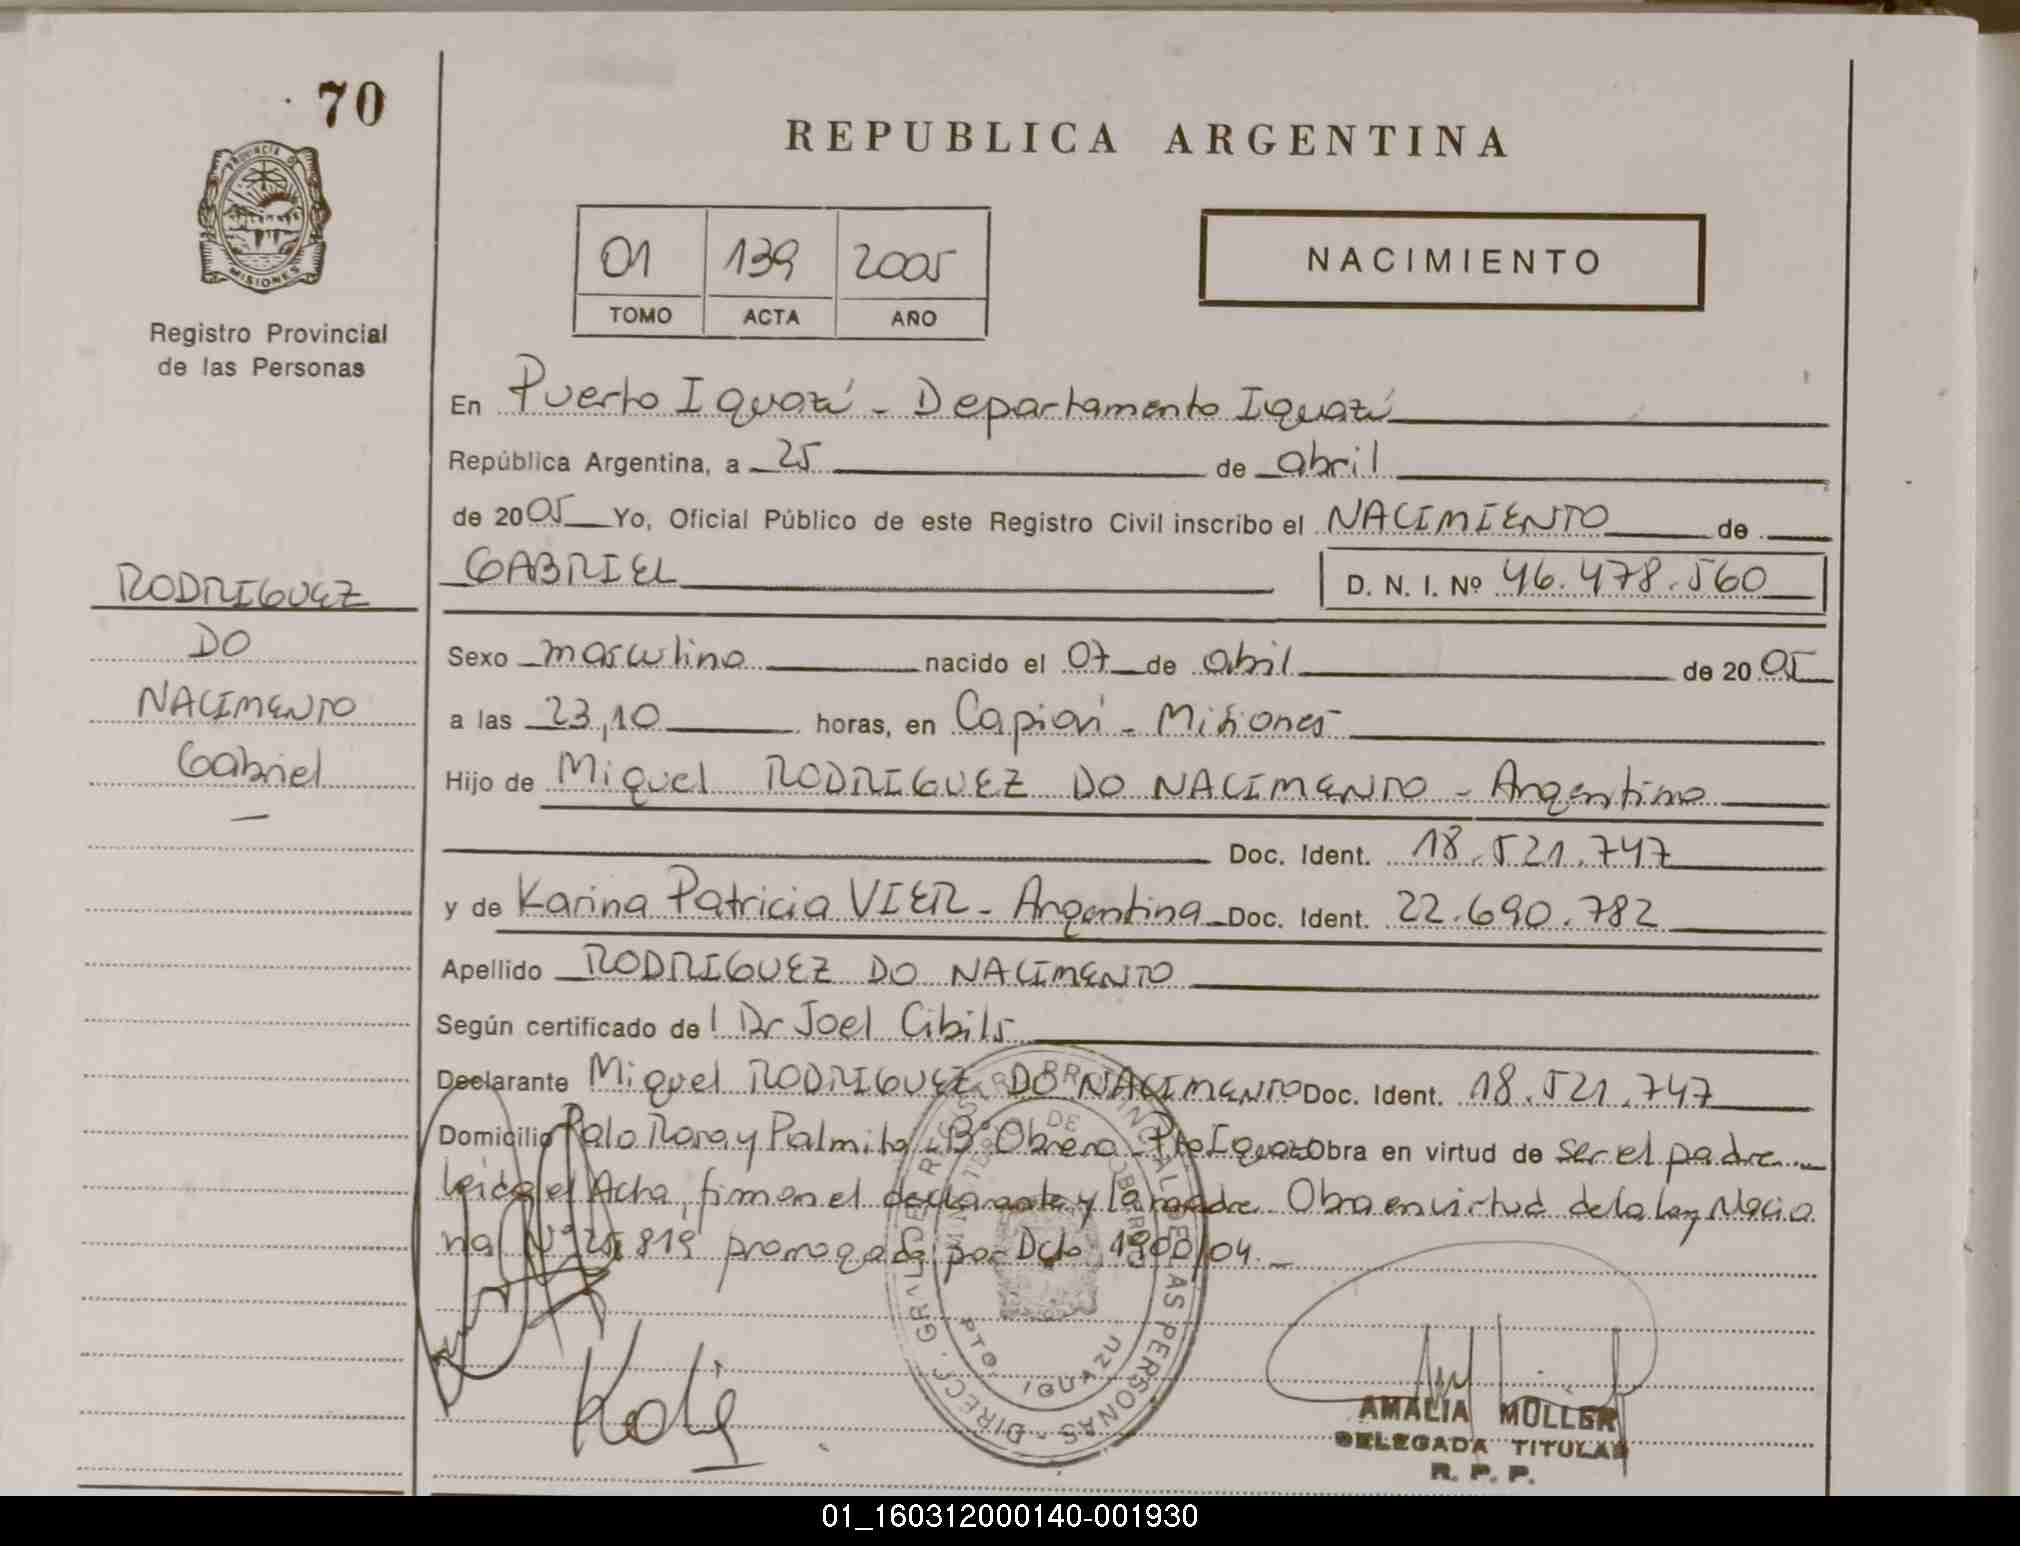 70
PROVINCIA DE
MISIONES
Registro Provincial
de las Personas
RODRIGUEZ
DO
NACIMENTO
Gabriel
REPUBLICA ARGENTINA
01 139 2005
TOMO ACTA AÑO
NACIMIENTO
En Puerto Iguazú - Departamento Iguazú
República Argentina, a 25 de abril
de 2005 Yo, Oficial Público de este Registro Civil inscribo el NACIMIENTO de
GABRIEL D. N. I. Nº 46.478.560
Sexo masculino nacido el 07 de abril de 2005
a las 23,10 horas, en Capioví - Misiones
Hijo de Miguel RODRIGUEZ DO NACIMENTO - Argentino
Doc. Ident. 18.521.747
y de Karina Patricia VIER - Argentina Doc. Ident. 22.690.782
Apellido RODRIGUEZ DO NACIMENTO
Según certificado del Dr Joel Cibils
Declarante Miguel RODRIGUEZ DO NACIMENTO Doc. Ident. 18.521.747
Domicilio Palo Rosa y Palmito - Bº Obrero - Pto Iguazú Obra en virtud de ser el padre
leída el Acta, firman el declarante y la madre. Obra en virtud de la Ley Nacio
nal Nº 25.819 prorrogada por Dcto 1900/04.
DIRECC. GRAL. DE REGISTRO PROVINCIAL DE LAS PERSONAS
PTO. IGUAZU
AMALIA MULLER
DELEGADA TITULAR
R. P. P.
01_160312000140-001930